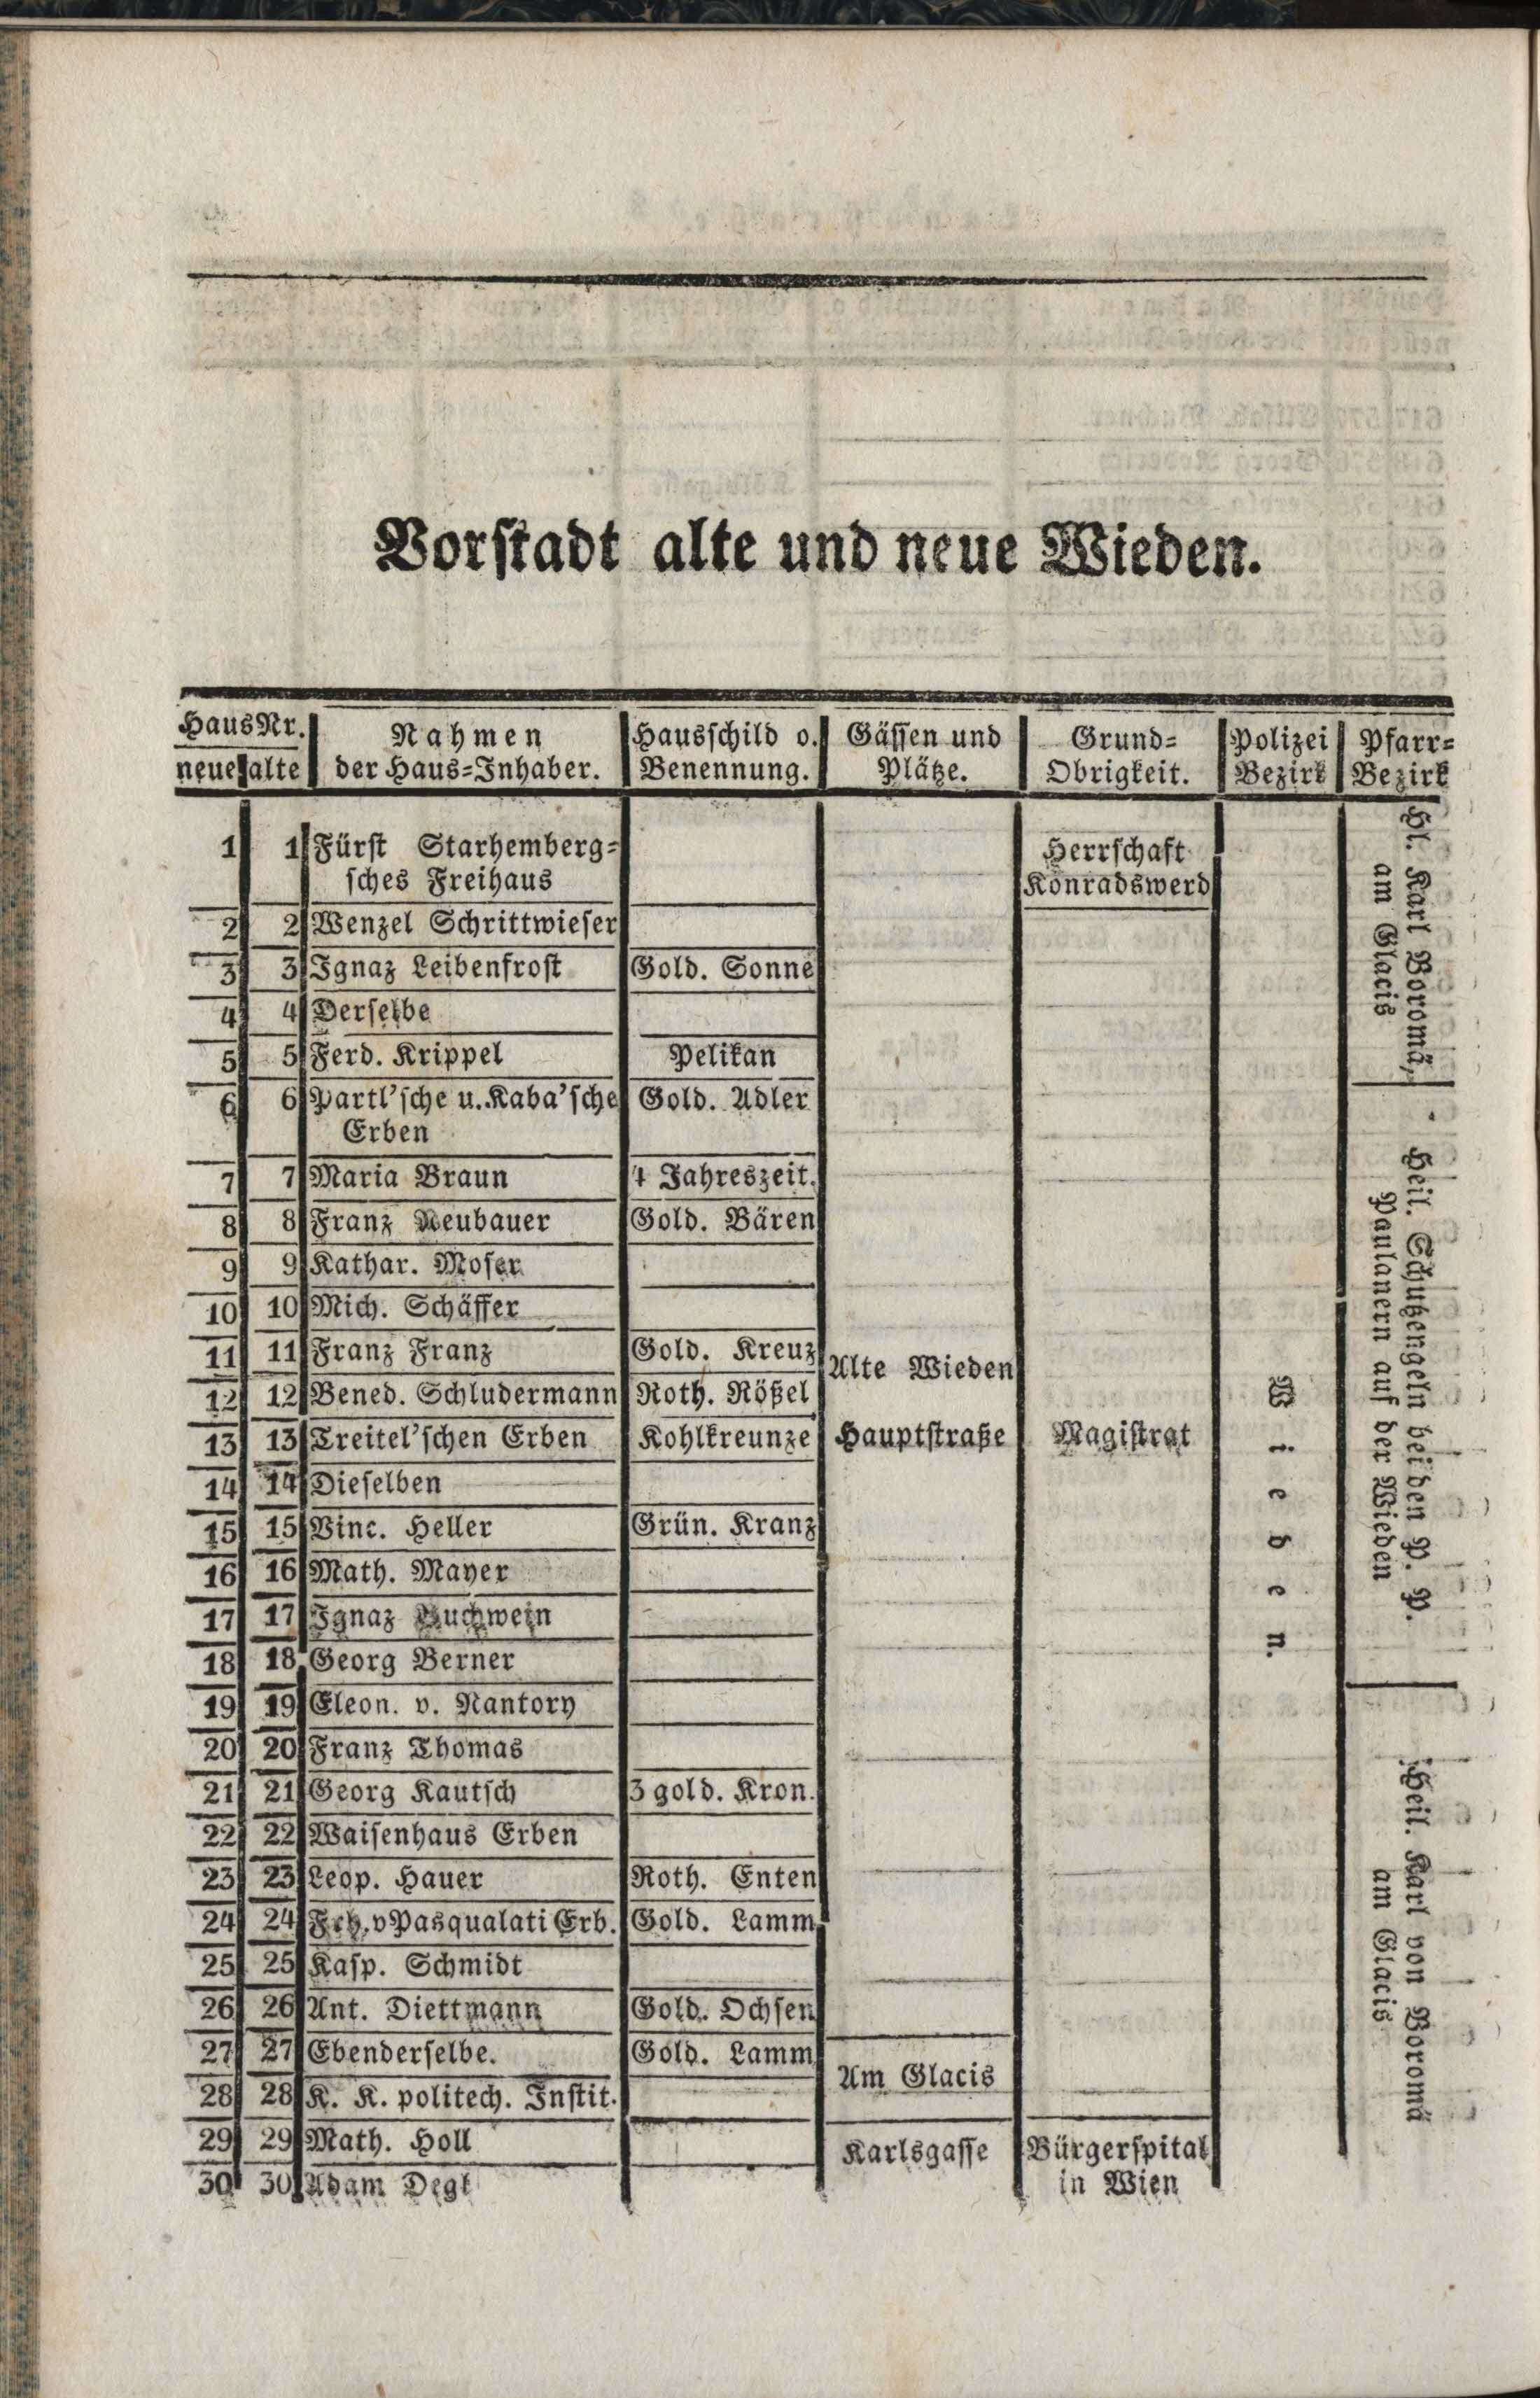 Vorstadt alte und neue Wieden.
HausNr. Nahmen Hausschild o. Gässen und Grund= Polizei Pfarr=
neue alte der Haus=Inhaber. Benennung. Plätze. Obrigkeit. Bezirk Bezirk
1 1 Fürst Starhemberg= Herrschaft
sches Freihaus Konradswerd
2 2 Wenzel Schrittwieser
3 3 Ignaz Leibenfrost Gold. Sonne
4 4 Derselbe
5 5 Ferd. Krippel Pelikan
6 6 Partl'sche u. Kaba'sche Gold. Adler
Erben
7 7 Maria Braun 4 Jahreszeit.
8 8 Franz Neubauer Gold. Bären
9 9 Kathar. Moser
10 10 Mich. Schäffer
11 11 Franz Franz Gold. Kreuz Alte Wieden
12 12 Bened. Schludermann Roth. Rößel
13 13 Treitel'schen Erben Kohlkreunze Hauptstraße Magistrat
14 14 Dieselben
15 15 Vinc. Heller Grün. Kranz
16 16 Math. Mayer
17 17 Ignaz Buchwein
18 18 Georg Berner
19 19 Eleon. v. Nantory
20 20 Franz Thomas
21 21 Georg Kautsch 3 gold. Kron.
22 22 Waisenhaus Erben
23 23 Leop. Hauer Roth. Enten
24 24 Frh. v Pasqualati Erb. Gold. Lamm
25 25 Kasp. Schmidt
26 26 Ant. Diettmann Gold. Ochsen
27 27 Ebenderselbe. Gold. Lamm
28 28 K. K. politech. Instit. Am Glacis
29 29 Math. Holl Karlsgasse Bürgerspital
30 30 Adam Degl in Wien
Wieden.
Hl. Karl Boromä,
am Glacis
Heil. Schutzengeln bei den P. P.
Paulanern auf der Wieden
Heil. Karl von Boromä
am Glacis